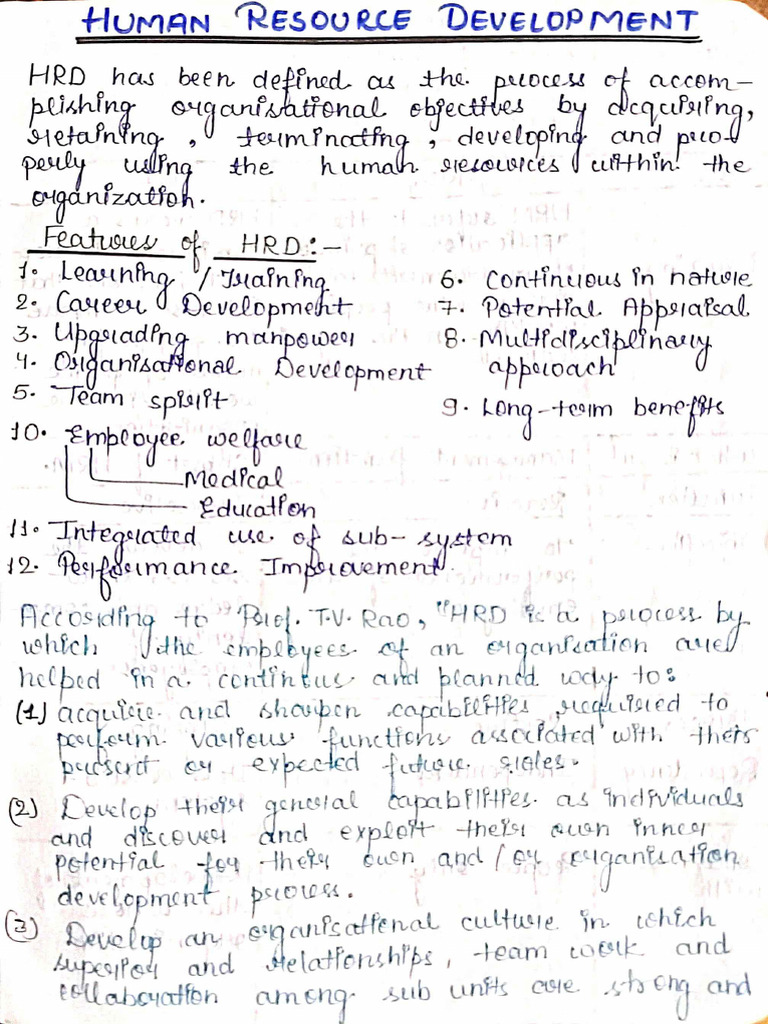 HUMAN RESOURCE DEVELOPMENT
HRD has been defined as the process of accom-
plishing organisational objectives by acquiring,
retaining, terminating, developing and pro-
perly using the human resources within the
organization.
Features of HRD:-
1. Learning / Training
2. Career Development
3. Upgrading manpower
4. Organisational Development
5. Team spirit
6. Continuous in nature
7. Potential Appraisal
8. Multidisciplinary
approach
9. Long-term benefits
10. Employee welfare
Medical
Education
11. Integrated use of sub-system
12. Performance Improvement
According to Prof. T.V. Rao, "HRD is a process by
which the employees of an organisation are
helped in a continous and planned way to:
(1) acquire and sharpen capabilities required to
perform various functions associated with their
present or expected future roles.
(2) Develop their general capabilities as individuals
and discover and exploit their own inner
potential for their own and/or organisation
development process.
(3) Develop an organisational culture in which
superior and relationships, team work and
collaboration among sub units are strong and